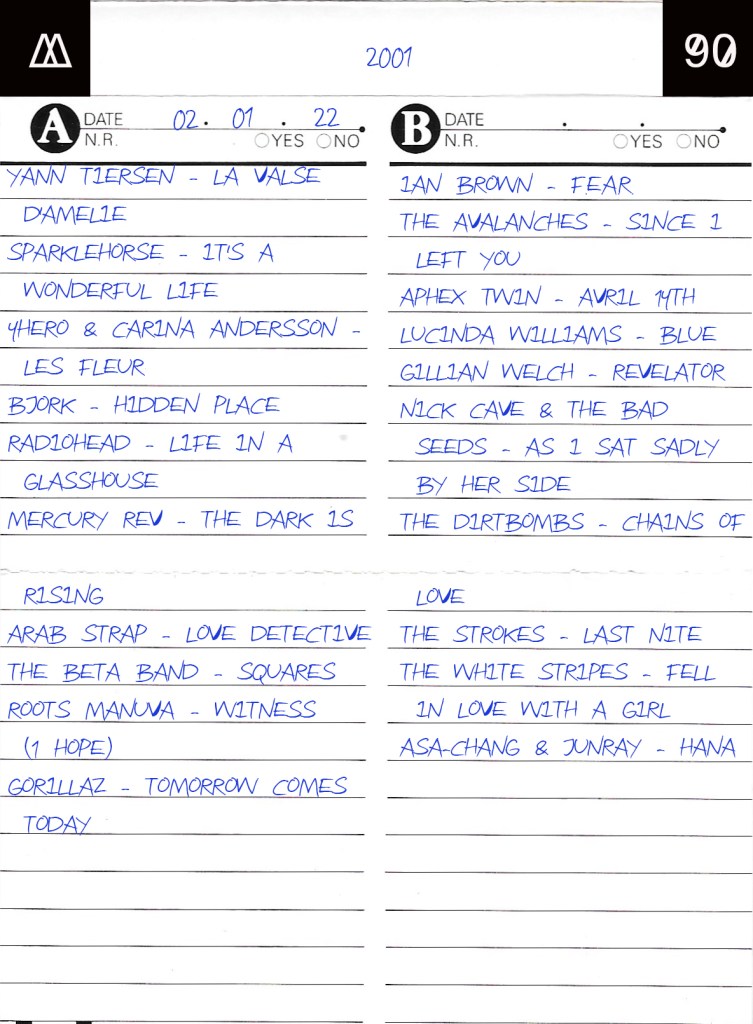 2001
90
A DATE 02. 01. 22
N.R. YES NO
YANN TIERSEN - LA VALSE
D'AMELIE
SPARKLEHORSE - IT'S A
WONDERFUL LIFE
4HERO & CARINA ANDERSSON -
LES FLEUR
BJORK - HIDDEN PLACE
RADIOHEAD - LIFE IN A
GLASSHOUSE
MERCURY REV - THE DARK IS
RISING
ARAB STRAP - LOVE DETECTIVE
THE BETA BAND - SQUARES
ROOTS MANUVA - WITNESS
(1 HOPE)
GORILLAZ - TOMORROW COMES
TODAY
B DATE . .
N.R. YES NO
IAN BROWN - FEAR
THE AVALANCHES - SINCE I
LEFT YOU
APHEX TWIN - AVRIL 14TH
LUCINDA WILLIAMS - BLUE
GILLIAN WELCH - REVELATOR
NICK CAVE & THE BAD
SEEDS - AS I SAT SADLY
BY HER SIDE
THE DIRTBOMBS - CHAINS OF
LOVE
THE STROKES - LAST NITE
THE WHITE STRIPES - FELL
IN LOVE WITH A GIRL
ASA-CHANG & JUNRAY - HANA